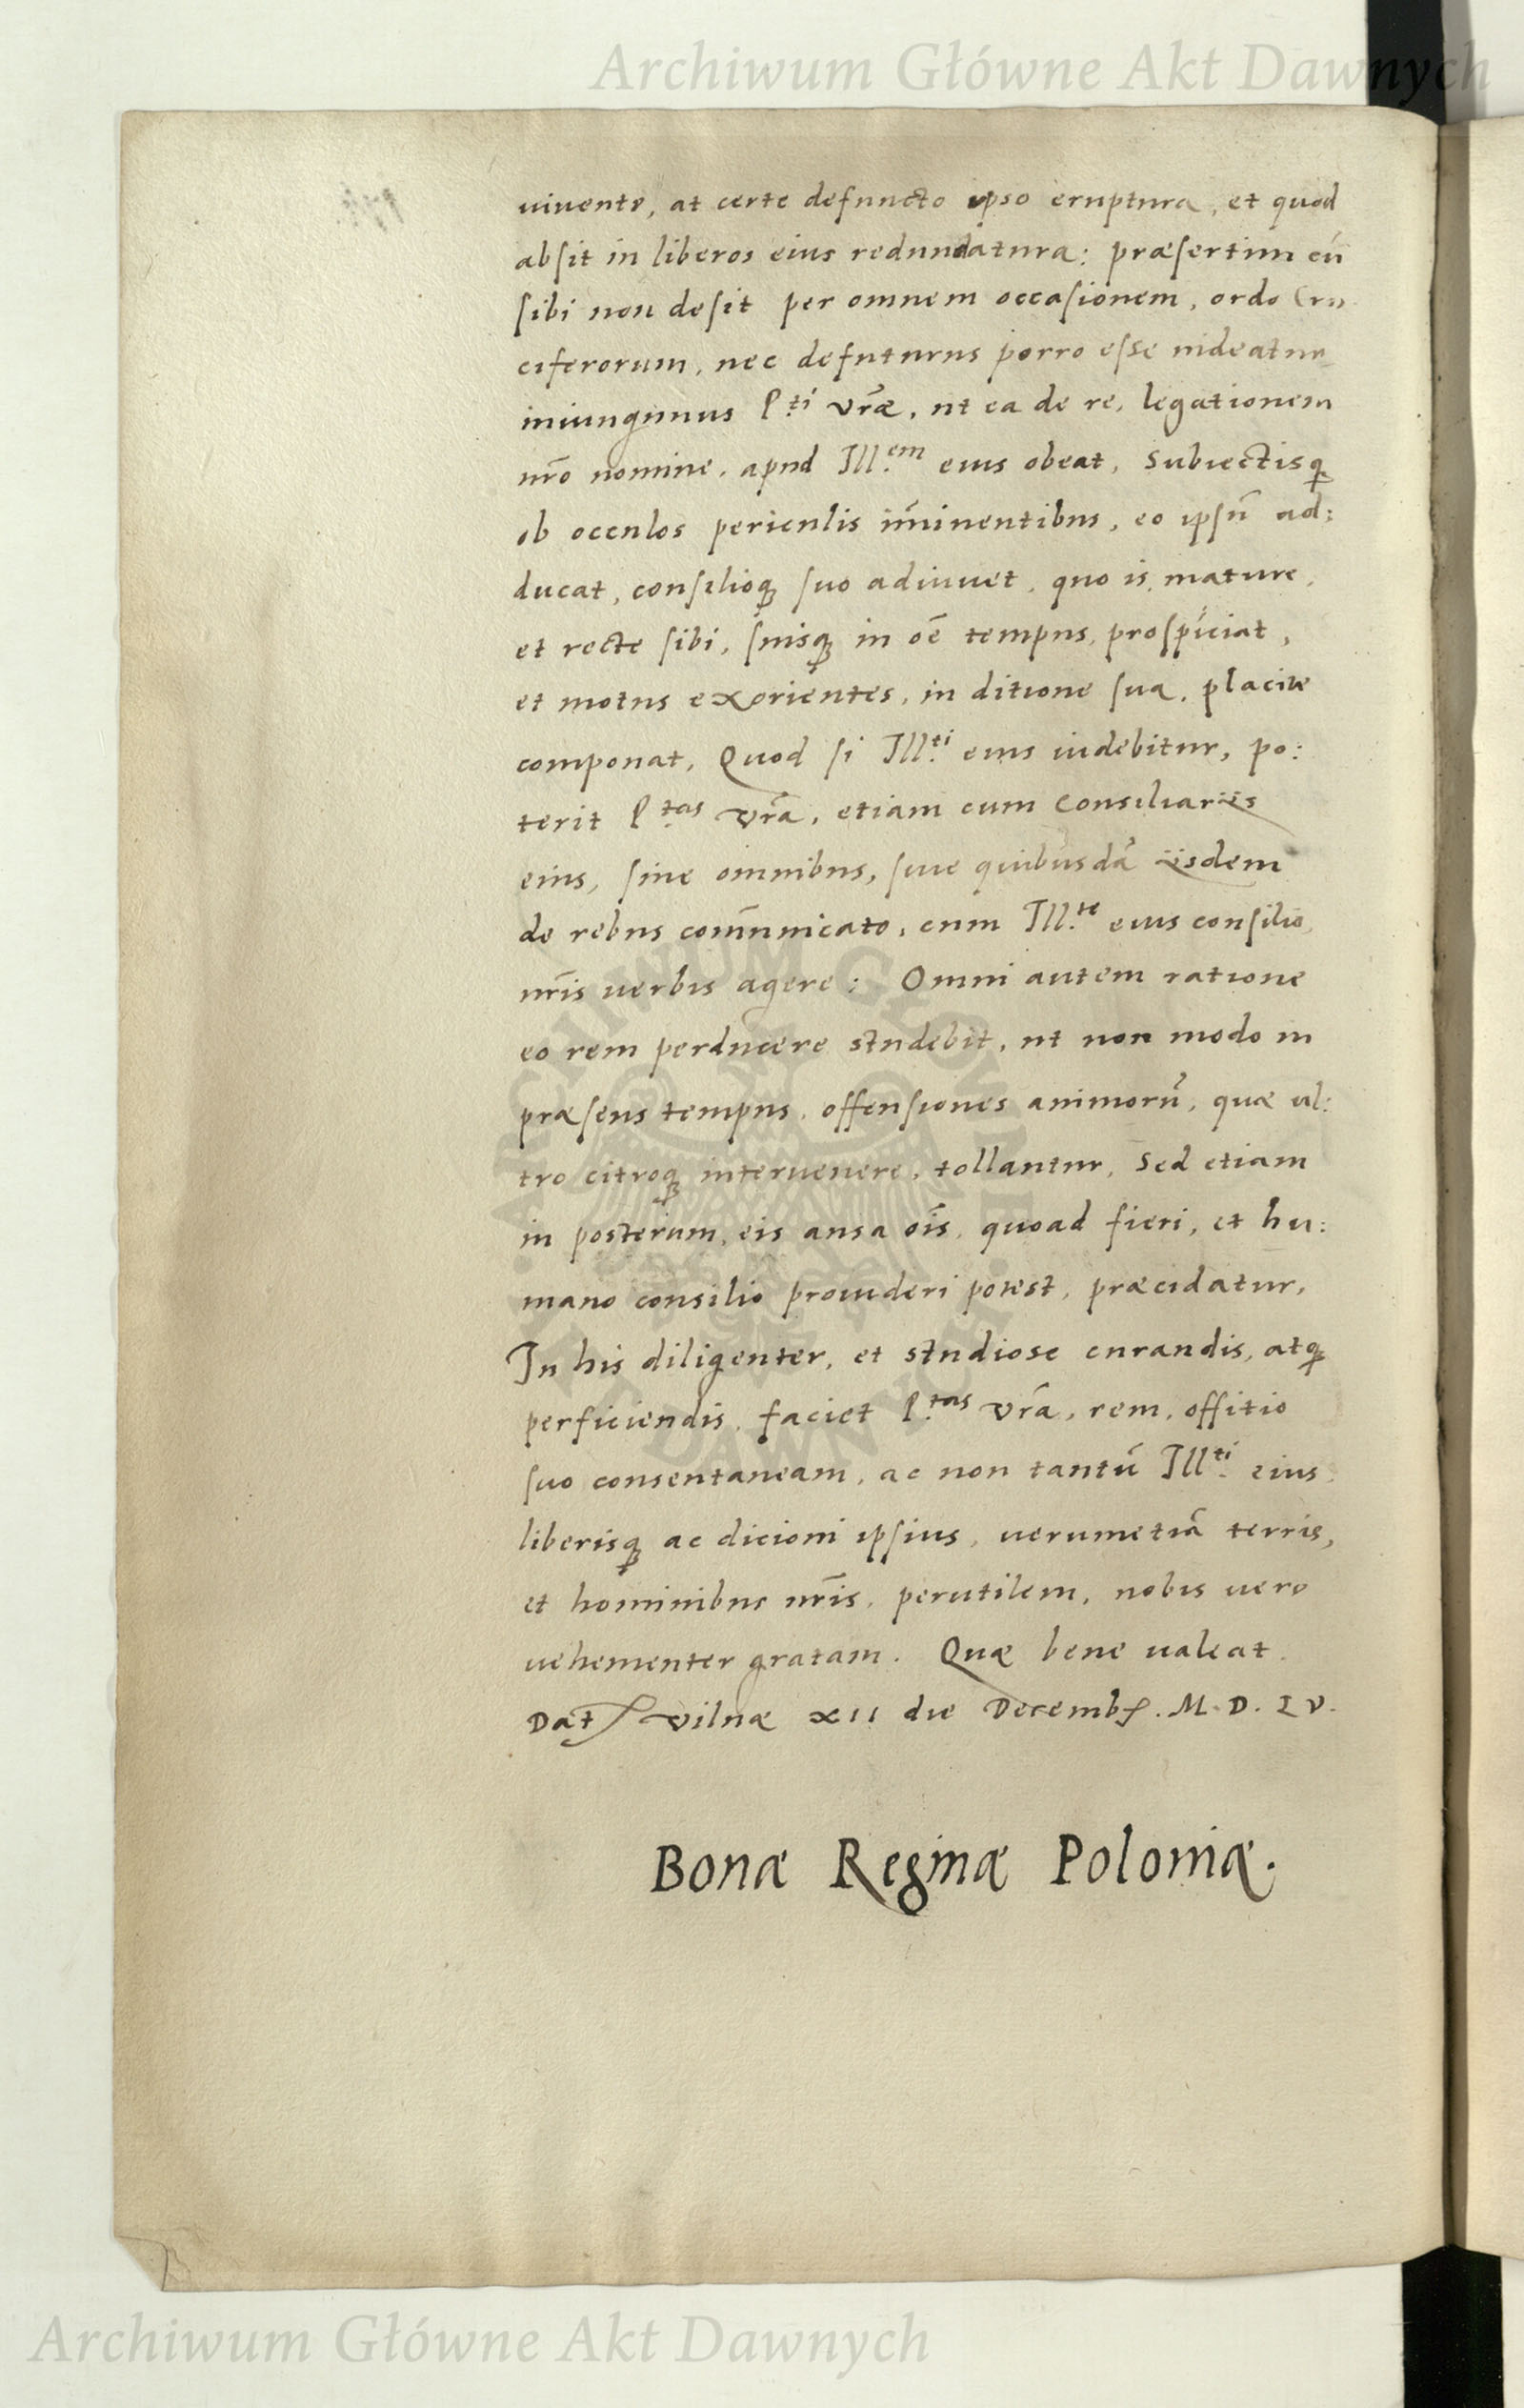 Archiwum Główne Akt Dawnych
viuente, at certe defuncto ipso eruptura, et quod
absit in liberos eius redundatura: præsertim cū
sibi non desit per omnem occasionem, ordo Cru
ciferorum, nec defuturus porro esse uideatur
iniungimus P.ti vrãe, ut ea de re, legationem
nrõ nomine, apud Ill.em eius obeat, Subiectisq
ob occulos periculis im̃inentibus, eo ipsū ad:
ducat, consilioq suo adiuuet, quo is, mature,
et recte sibi, suisq in oẽ tempus, prospiciat,
et motus exorientes, in ditione sua, placite
componat, Quod si Ill.ti eius uidebitur, po:
terit P.tas vrã, etiam cum Consiliariis
eius, siue omnibus, siue quibusdã iisdem
de rebus com̃unicato, cum Ill.te eius consilio,
nrĩs uerbis agere: Omni autem ratione
eo rem perducere studebit, ut non modo in
præsens tempus, offensiones animorũ, quæ ul:
tro citroq interuenere, tollantur, Sed etiam
in posterum, eis ansa oĩs, quoad fieri, et hu:
mano consilio prouideri potest, præcidatur,
In his diligenter, et studiose curandis, atq
perficiendis, faciet P.tas vrã, rem, offitio
suo consentaneam, ac non tantũ Ill.ti eius
liberisq ac dicioni ipsius, uerumetiã terris,
et hominibus nrĩs, perutilem, nobis uero
uehementer gratam. Quæ bene ualeat.
Dat Vilnæ XII die Decemb. M. D. LV.
Bonæ Reginæ Poloniæ.
ARCHIWUM GŁÓWNE AKT DAWNYCH
Archiwum Główne Akt Dawnych